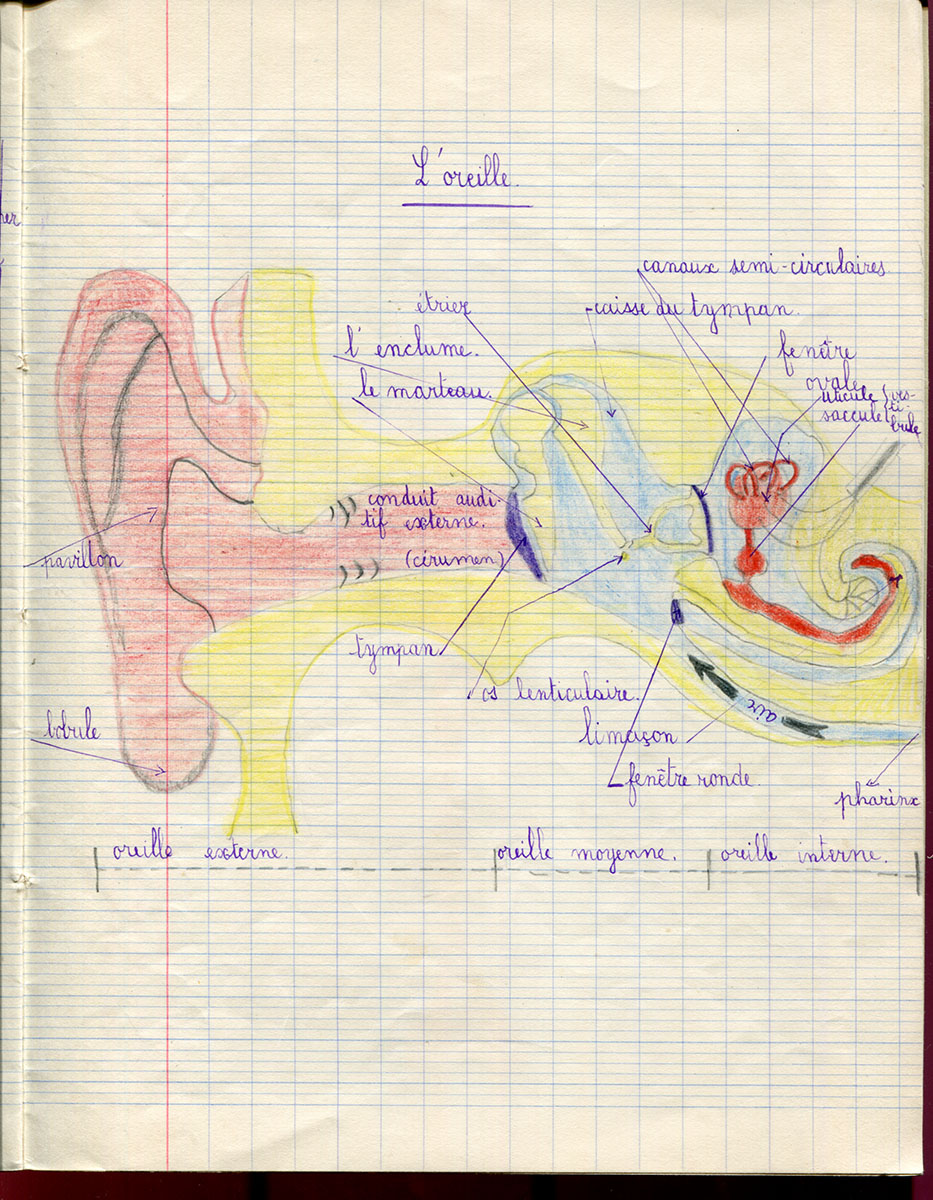 L'oreille.
canaux semi-circulaires
étrier
caisse du tympan.
l'enclume.
fenêtre
ovale
le marteau.
utricule
saccule
ves-
ti-
bule
conduit audi-
tif externe.
(cérumen)
pavillon
tympan
os lenticulaire.
air
lobule
limaçon
fenêtre ronde.
pharinx
oreille externe.
oreille moyenne.
oreille interne.